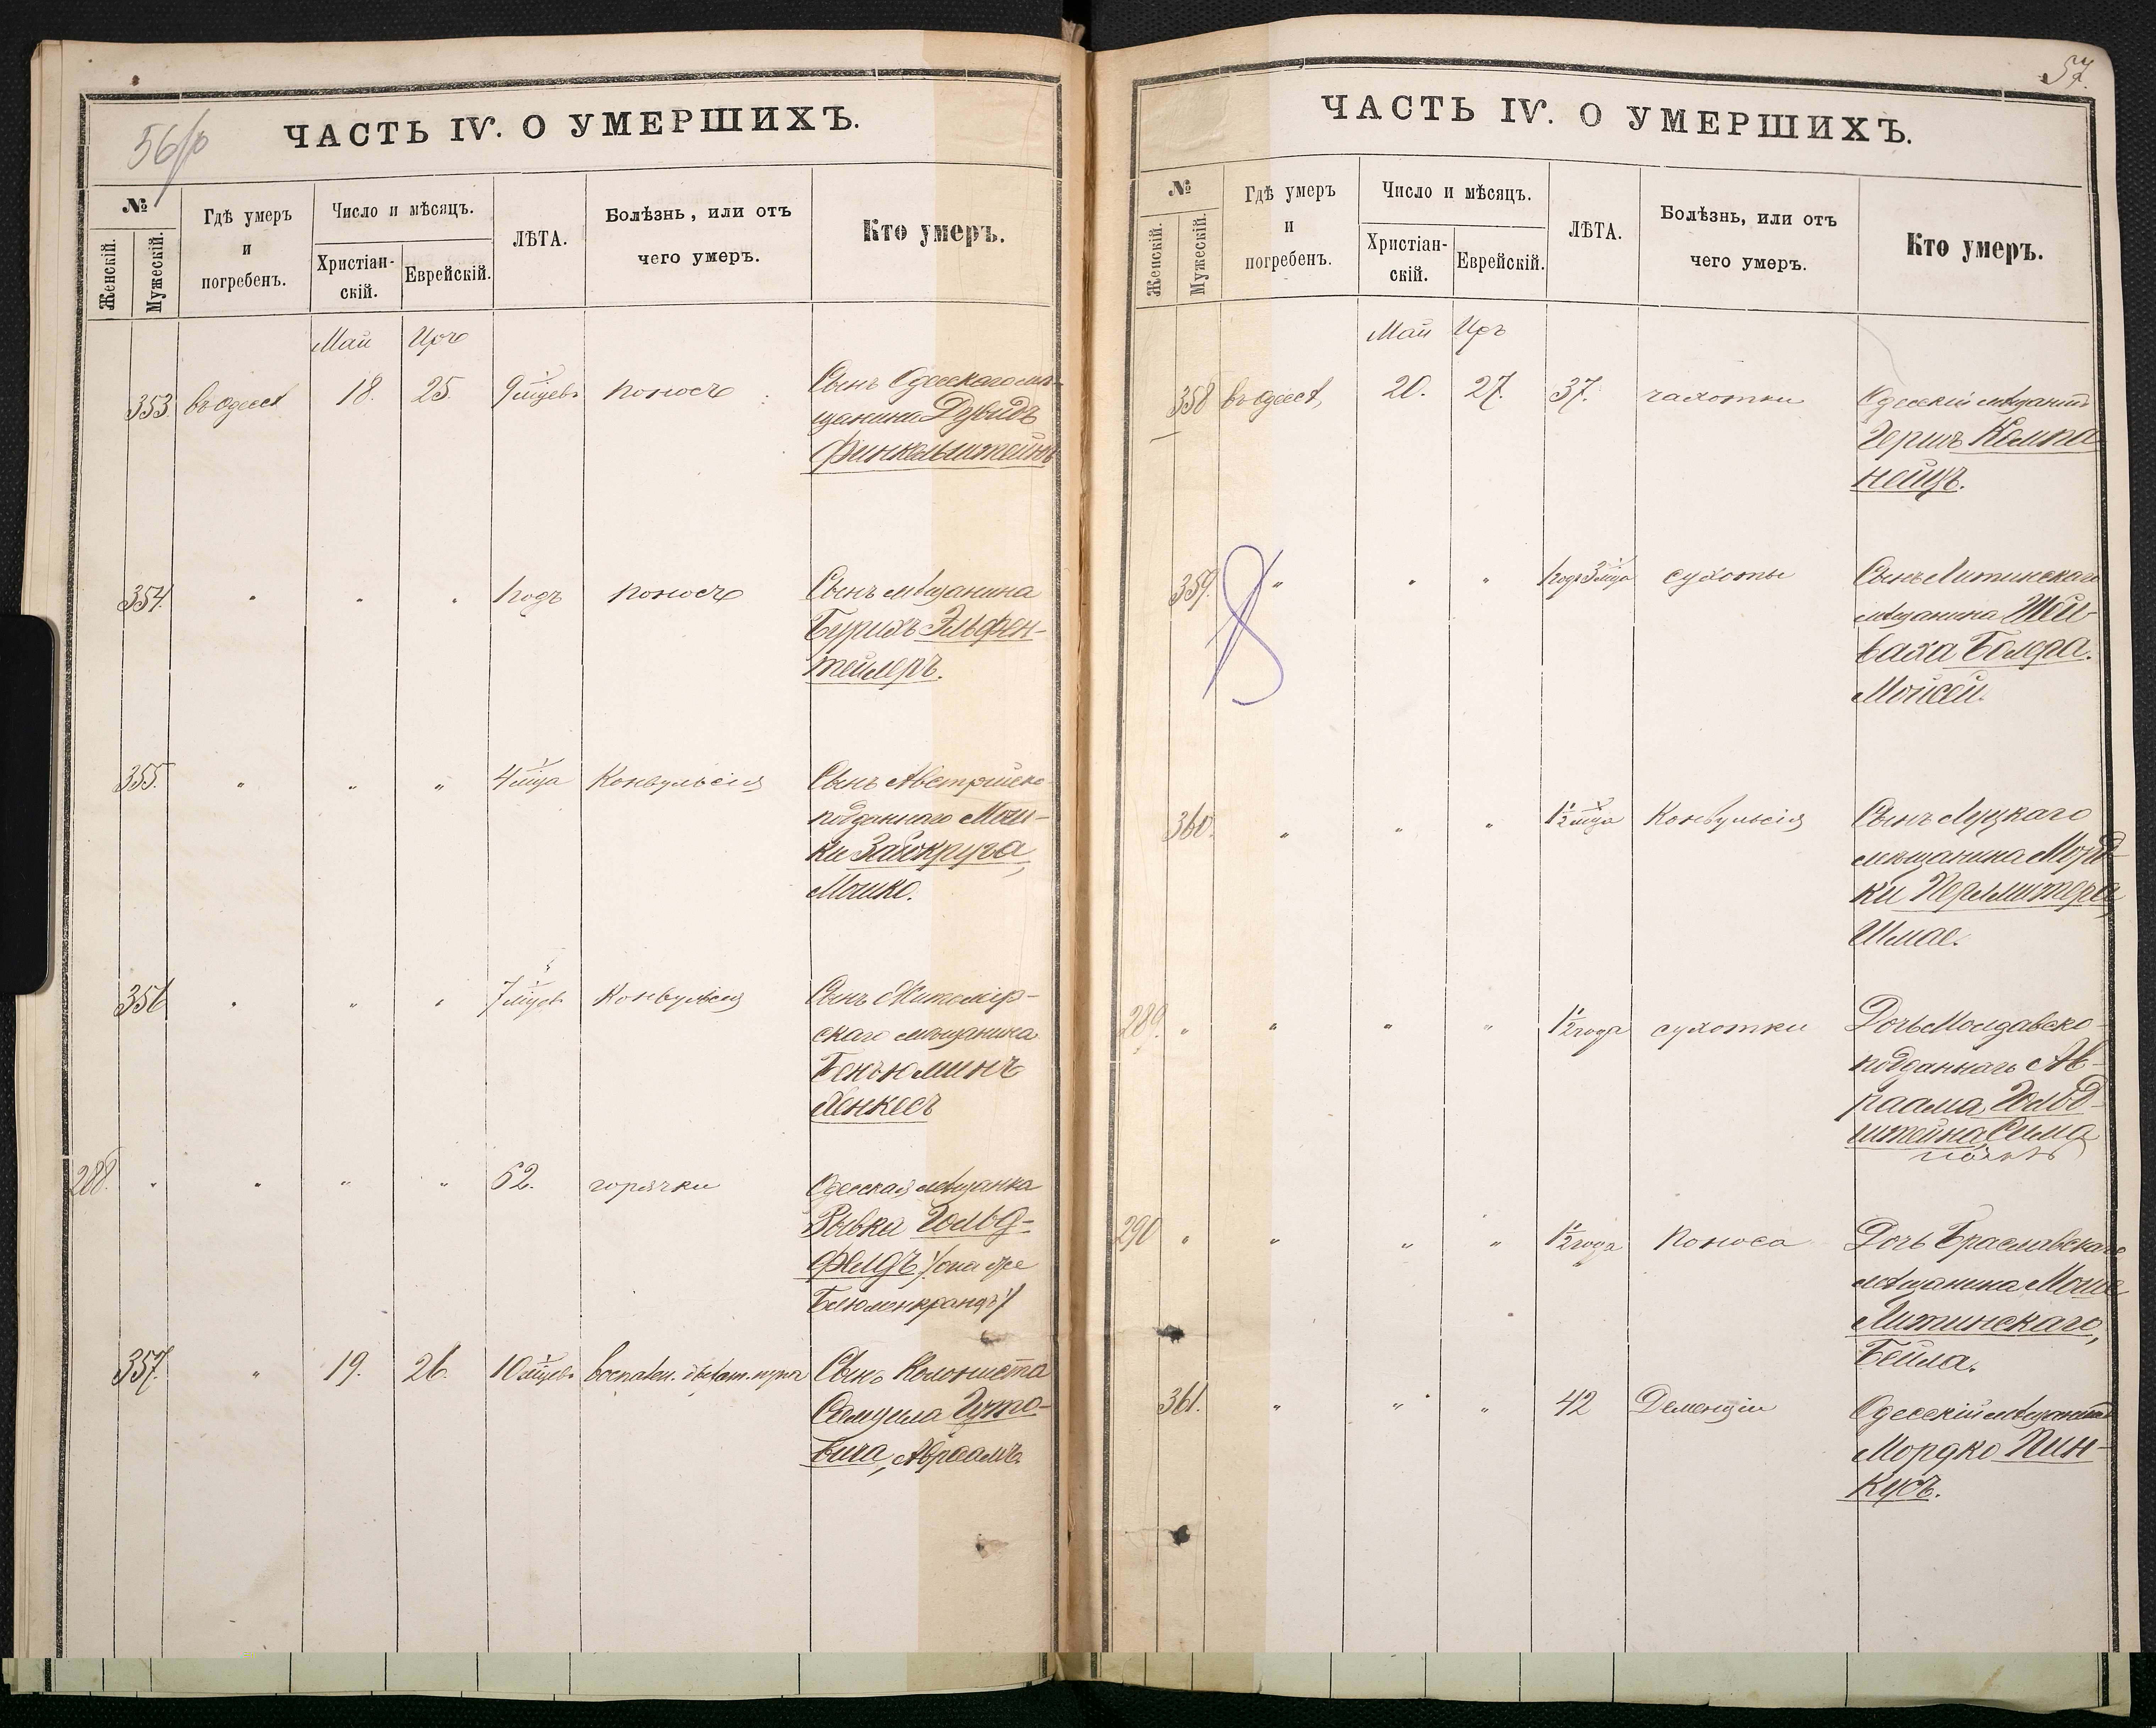 56 об
ЧАСТЬ IV. О УМЕРШИХЪ.
№
Женскій.
Мужескій.
Гдѣ умеръ
и
погребенъ.
Число и мѣсяцъ.
Христіан-
скій.
Еврейскій.
ЛѢТА.
Болѣзнь, или отъ
чего умеръ.
Кто умеръ.
Май Иръ
353 въ Одессѣ 18. 25. 9 м-цевъ поносъ Сынъ Одесскаго мѣ-
щанина Дувидъ
Финкельштейнъ
354. " " " 1 годъ поносъ Сынъ мѣщанина
Бурихъ Эльфен-
тейлеръ.
355. " " " 4 м-ца Конвульсія Сынъ Австрійско-
подданнаго Мош-
ки Зайокруга,
Мошко.
356 " " " 7 м-цевъ Конвульсія Сынъ Житомір-
скаго мѣщанина
Беньюминъ
Ленкесъ
288. " " " " 62. горячки Одесская мѣщанка
Рывка Гольд-
фелдъ /: она же
Блюменкранцъ :/
357. " 19. 26. 10 м-цевъ воспален. дыхат. путя Сынъ Колониста
Самуила Гуто-
вича, Авраамъ.
57.
ЧАСТЬ IV. О УМЕРШИХЪ.
№
Женскій.
Мужескій.
Гдѣ умеръ
и
погребенъ.
Число и мѣсяцъ.
Христіан-
скій.
Еврейскій.
ЛѢТА.
Болѣзнь, или отъ
чего умеръ.
Кто умеръ.
Май Иръ
358 въ Одессѣ, 20. 27. 37. чахотки Одесскій мѣщанинъ
Гершъ Компа
нейцъ.
359. " " " 1 годъ 3 м-ца сухоты Сынъ Литинскаго
мѣщанина Шей-
ваха Болера.
Мойсей.
360. " " " 1 1/2 м-ца Конвульсія Сынъ Луцкаго
мѣщанина Морд-
ки Перлмитера,
Шмае.
289. " " " " 1 1/2 года сухотки Дочь Молдавско-
подданнаго Ав-
раама Гольд-
штейна, Сима
290 " " " " 1 1/2 года Поноса Дочь Браславскаго
мѣщанина Мошке
Литинскаго,
Бейла.
361. " " " 42 Деменціи Одесскій мѣщанинъ
Мордко Пин-
кусъ.